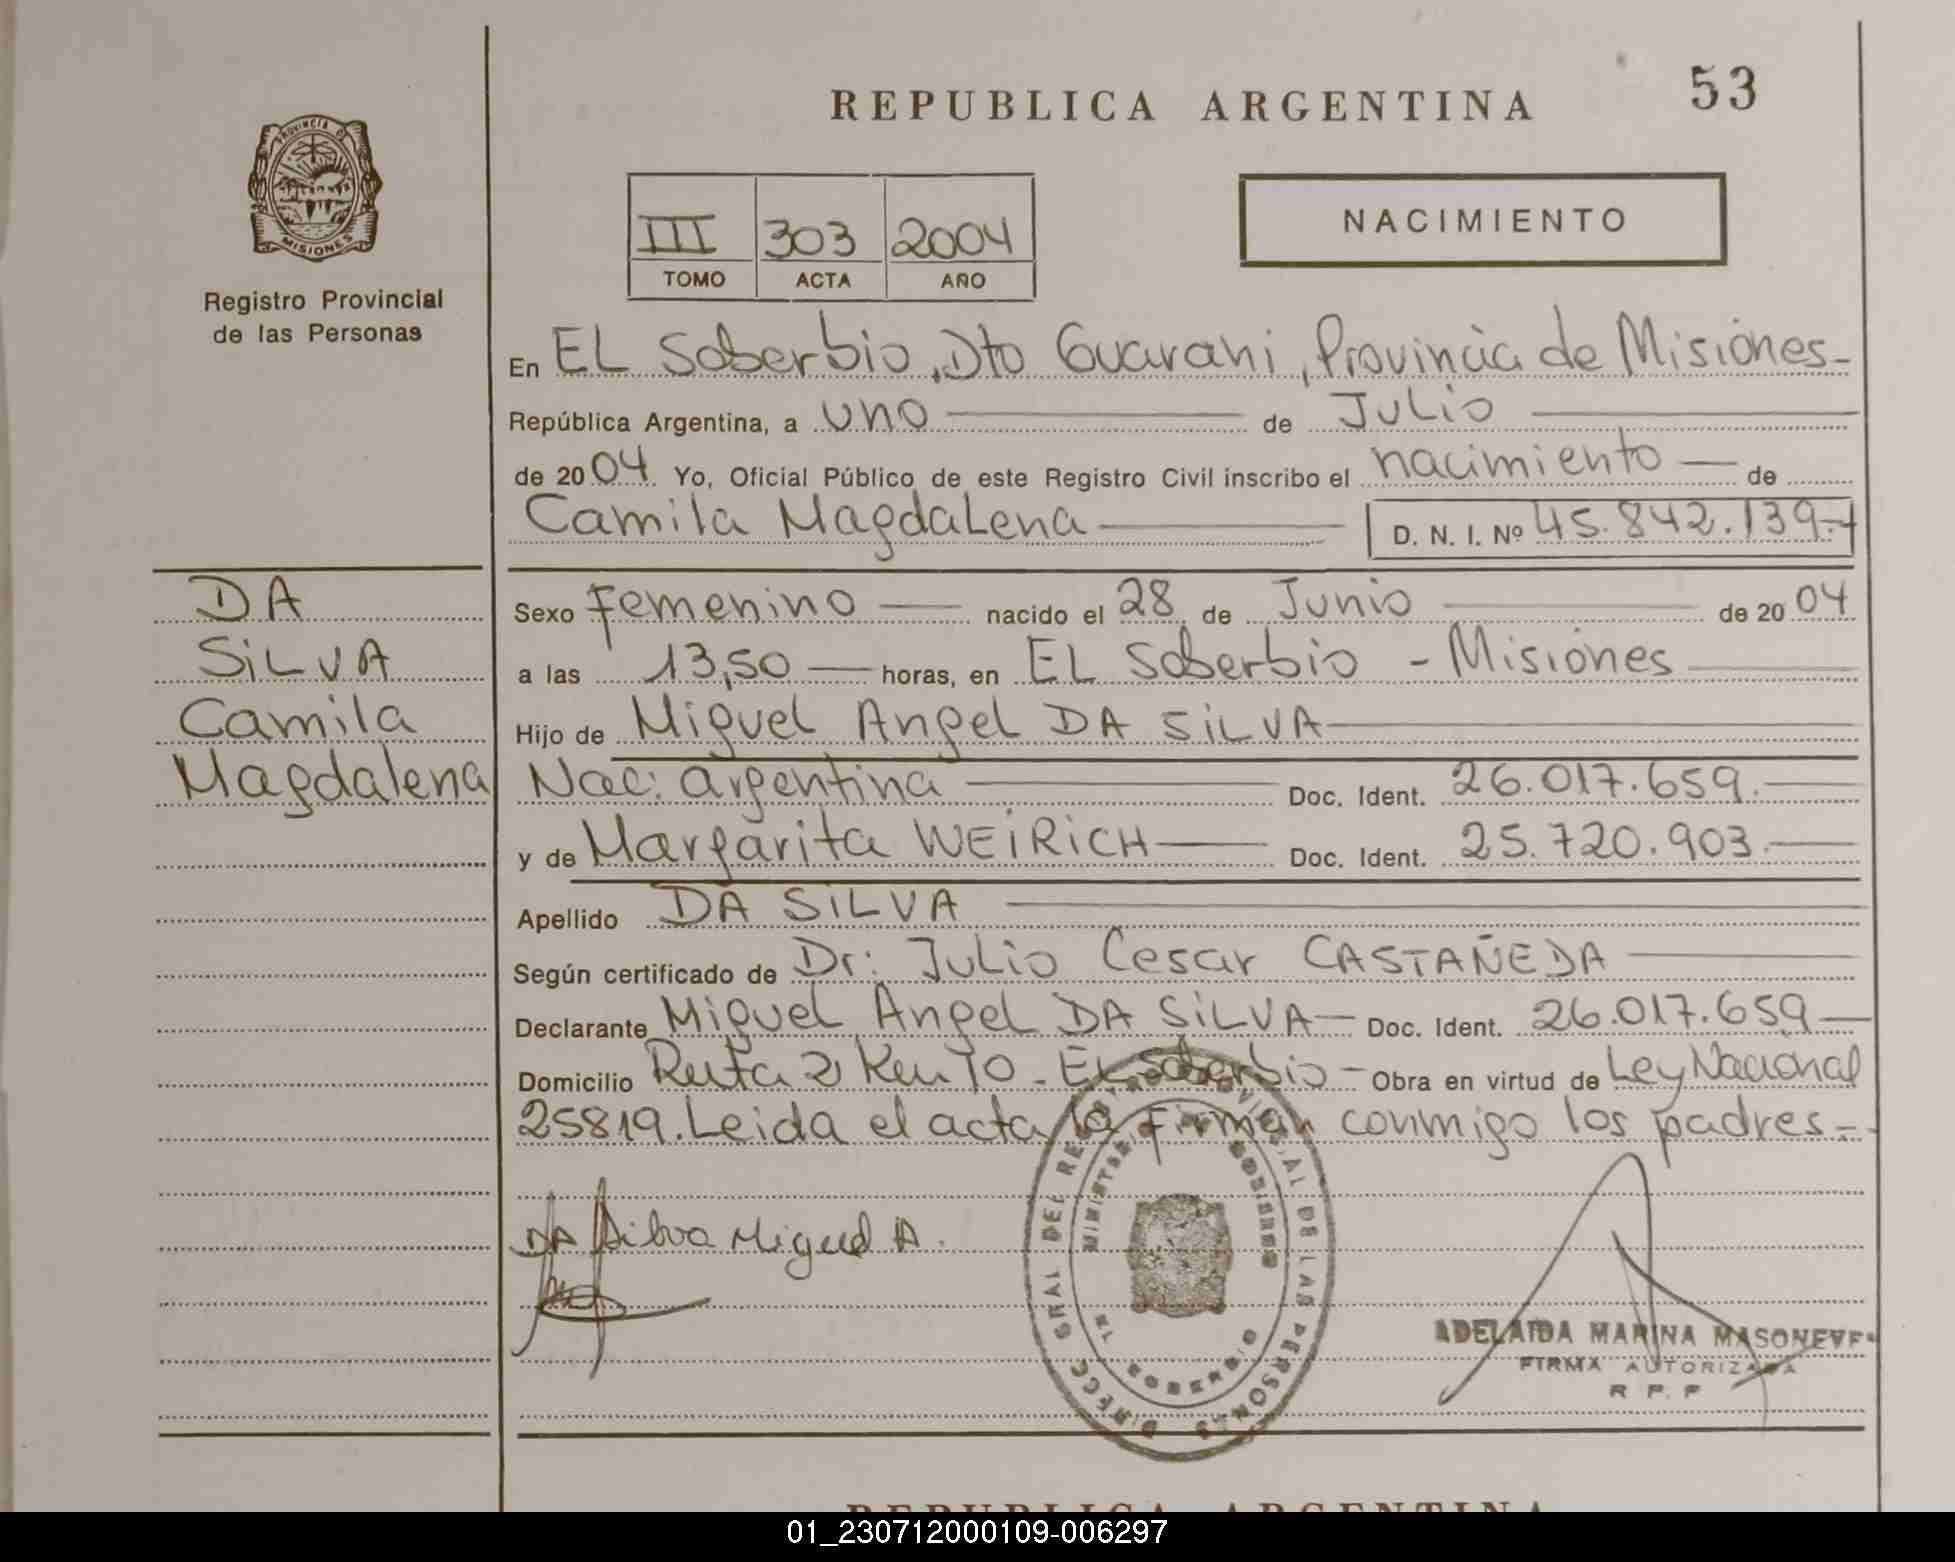 REPUBLICA ARGENTINA
53
PROVINCIA DE
MISIONES
Registro Provincial
de las Personas
III 303 2004
TOMO ACTA AÑO
NACIMIENTO
En EL Soberbio, Dto Guarani, Provincia de Misiones-
República Argentina, a uno de Julio
de 2004 Yo, Oficial Público de este Registro Civil inscribo el nacimiento de
Camila Magdalena D. N. I. Nº 45.842.139.-
DA
SiLVA
Camila
Magdalena
Sexo Femenino nacido el 28 de Junio de 2004
a las 13,50 horas, en EL Soberbio - Misiones
Hijo de Miguel Angel DA SiLVA
Nac: argentina Doc. Ident. 26.017.659.
y de Margarita WEiRiCH Doc. Ident. 25.720.903.
Apellido DA SiLVA
Según certificado de Dr: Julio Cesar CASTAÑEDA
Declarante Miguel Angel DA SiLVA Doc. Ident. 26.017.659
Domicilio Ruta 2 Km 10 - EL Soberbio - Obra en virtud de Ley Nacional
25819. Leida el acta la firman conmigo los padres.-
DA Silva Miguel A.
DIRECC GRAL DEL REG PROVINCIAL DE LAS PERSONAS
MINISTERIO GOBIERNO
EL SOBERBIO
ADELAIDA MARINA
FIRMA AUTORIZADA
R P. P
REPUBLICA ARGENTINA
01_230712000109-006297